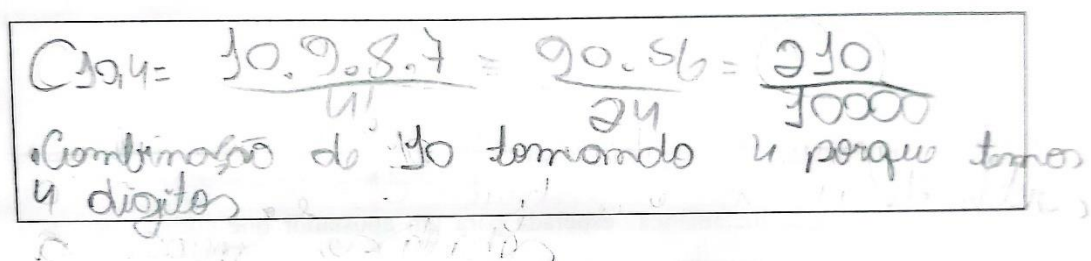 C10,4 = 10.9.8.7/4! = 90.56/24 = 210/10000
.Combinação de 10 tomando 4 porque temos
4 digitos